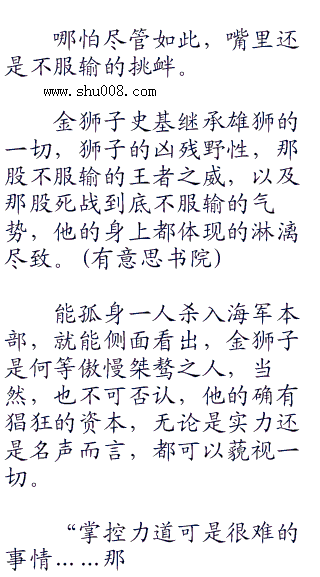 哪怕尽管如此，嘴里还
是不服输的挑衅。
www.shu008.com
金狮子史基继承雄狮的
一切，狮子的凶残野性，那
股不服输的王者之威，以及
那股死战到底不服输的气
势，他的身上都体现的淋漓
尽致。(有意思书院)
能孤身一人杀入海军本
部，就能侧面看出，金狮子
是何等傲慢桀骜之人，当
然，也不可否认，他的确有
猖狂的资本，无论是实力还
是名声而言，都可以藐视一
切。
“掌控力道可是很难的
事情……那